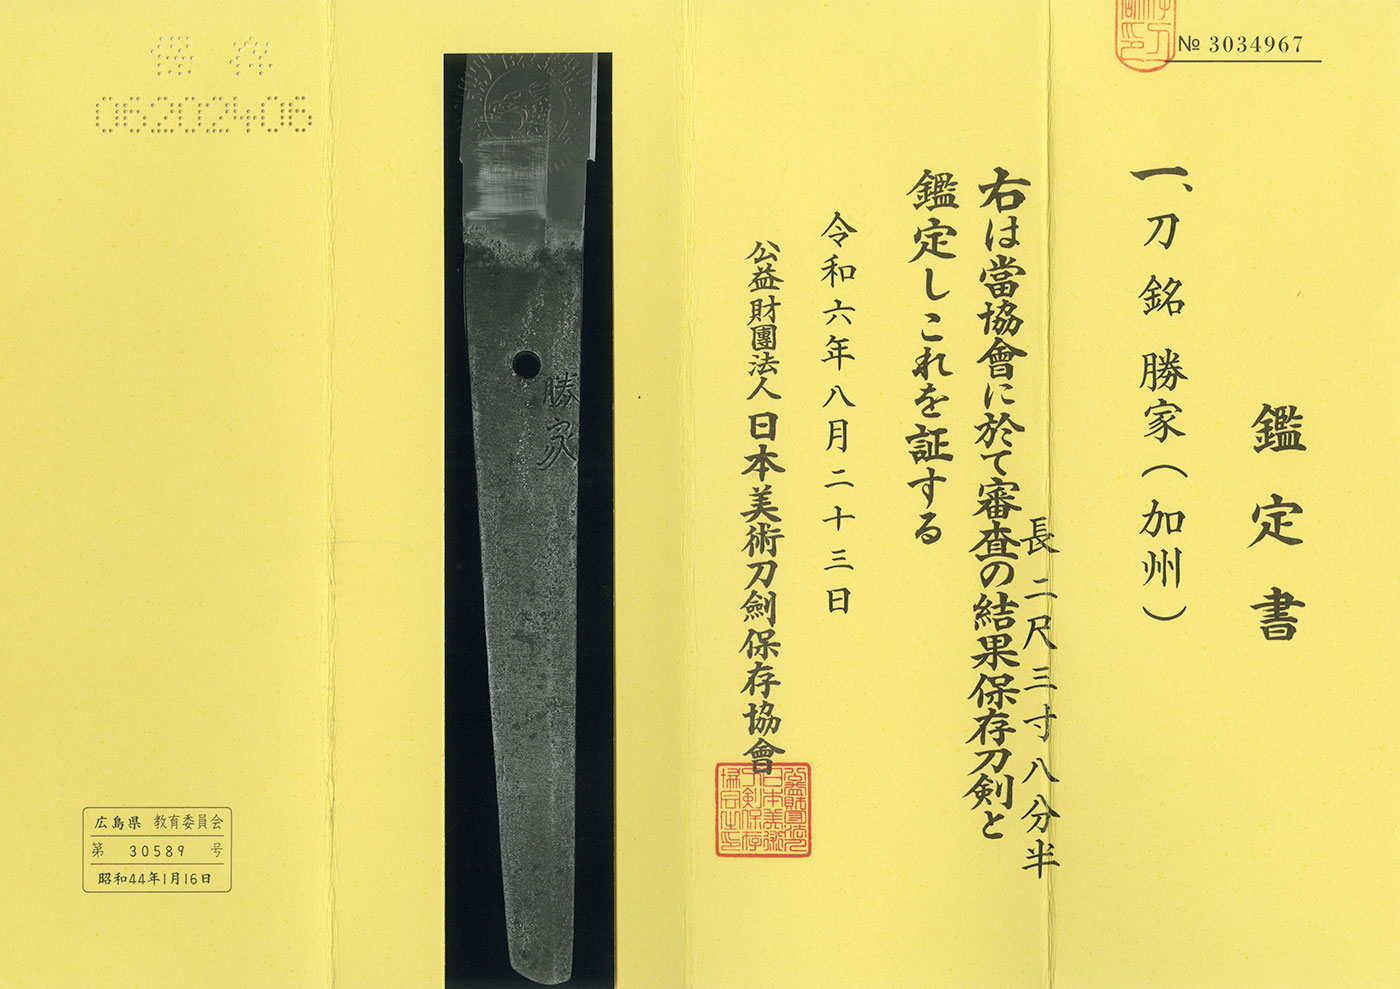 № 3034967
鑑定書
一、刀 銘 勝家(加州)
長二尺三寸八分半
右は當協會に於て審査の結果保存刀剣と
鑑定しこれを証する
令和六年八月二十三日
公益財團法人日本美術刀劍保存協會
勝家
保存
06202406
広島県 教育委員会
第 30589 号
昭和44年1月16日